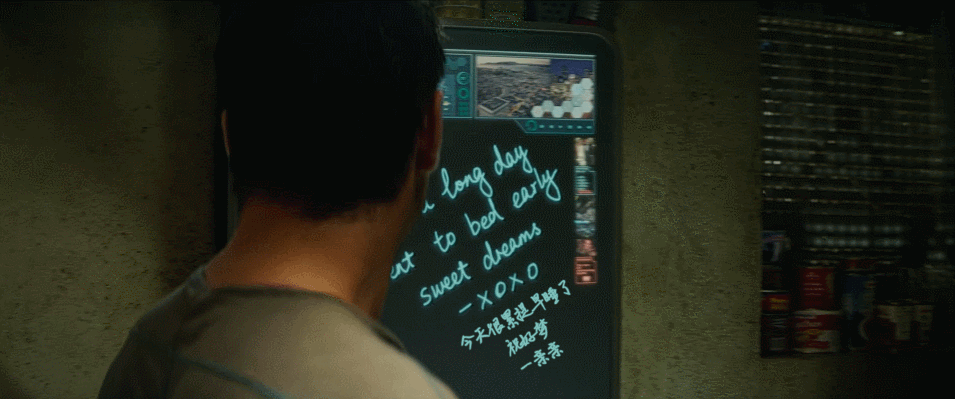 long day
to bed early
sweet dreams
- x o x o
今天很累提早睡了
祝好梦
一亲亲